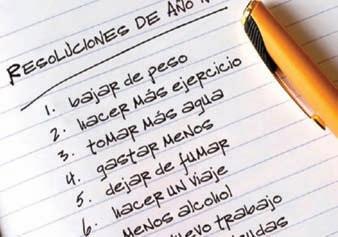 RESOLUCIONES DE AÑO
1. bajar de peso
2. hacer más ejercicio
3. tomar más agua
4. gastar menos
5. dejar de fumar
6. hacer un viaje
menos alcohol
nuevo trabajo